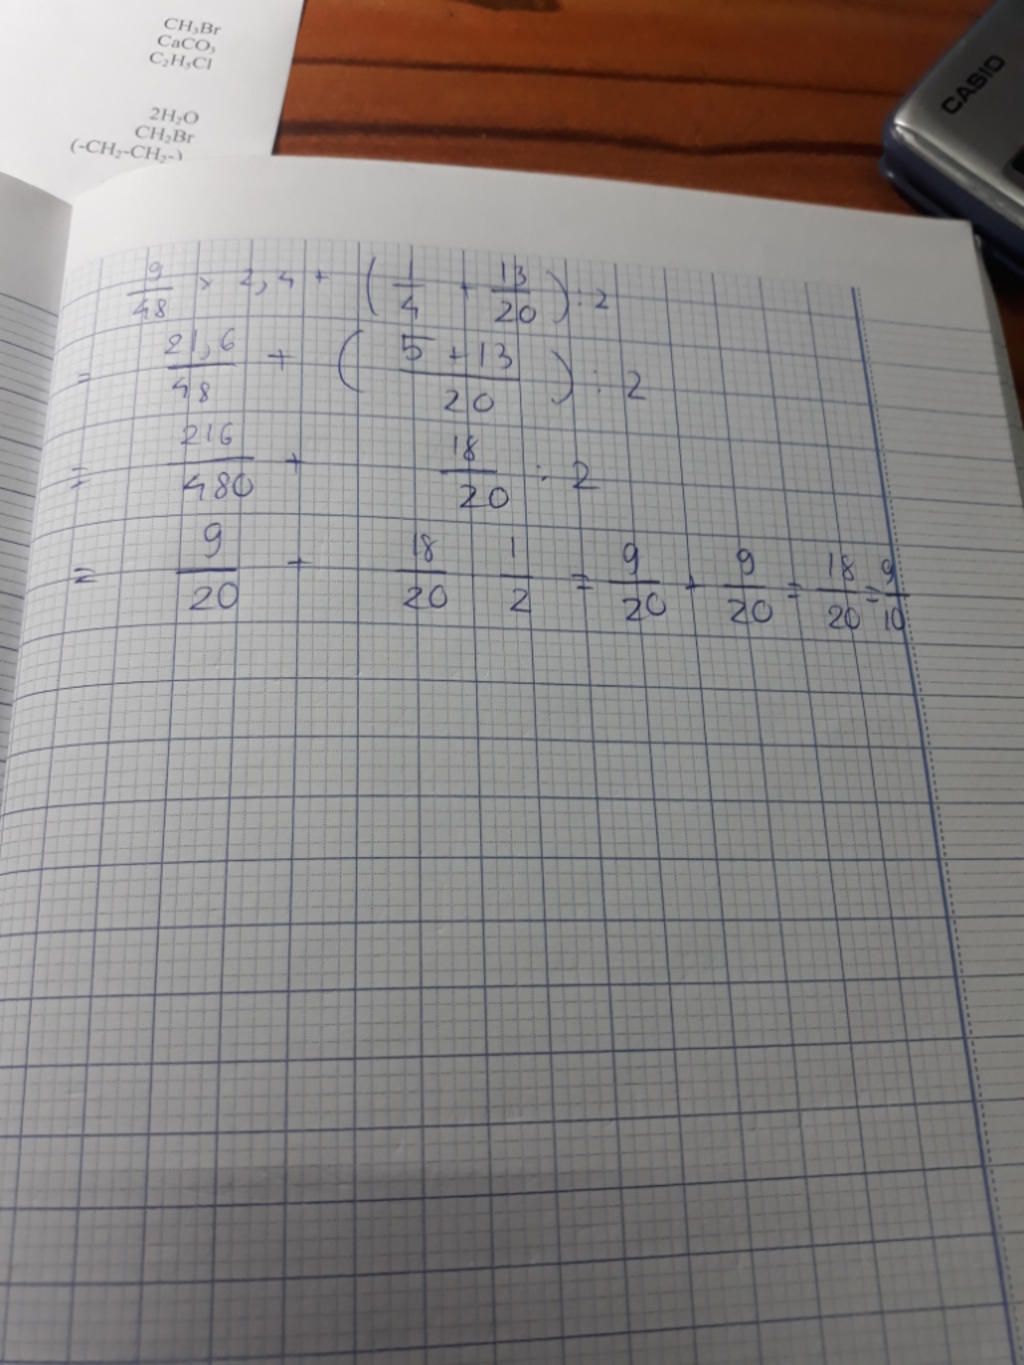 CH₃Br
CaCO₃
C₂H₅Cl
2H₂O
CH₂Br
(-CH₂-CH₂-)
CASIO
9/48 × 2,4 + (1/4 + 13/20) : 2
= 21,6/48 + (5+13/20) : 2
= 216/480 + 18/20 : 2
= 9/20 + 18/20 1/2 = 9/20 + 9/20 = 18/20 = 9/10